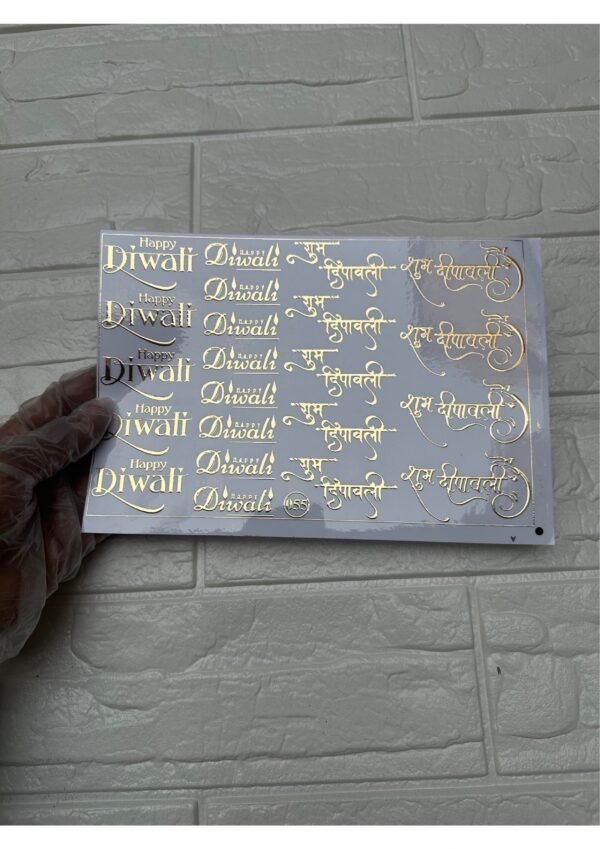 Happy
Diwali
Happy
Diwali
Happy
Diwali
Happy
Diwali
Happy
Diwali
HAPPY
Diwali
HAPPY
Diwali
HAPPY
Diwali
HAPPY
Diwali
HAPPY
Diwali
HAPPY
Diwali
HAPPY
Diwali
HAPPY
Diwali
055
शुभ
दिपावली
शुभ
दिपावली
शुभ
दिपावली
शुभ
दिपावली
शुभ
दिपावली
शुभ दीपावली
शुभ दीपावली
शुभ दीपावली
शुभ दीपावली